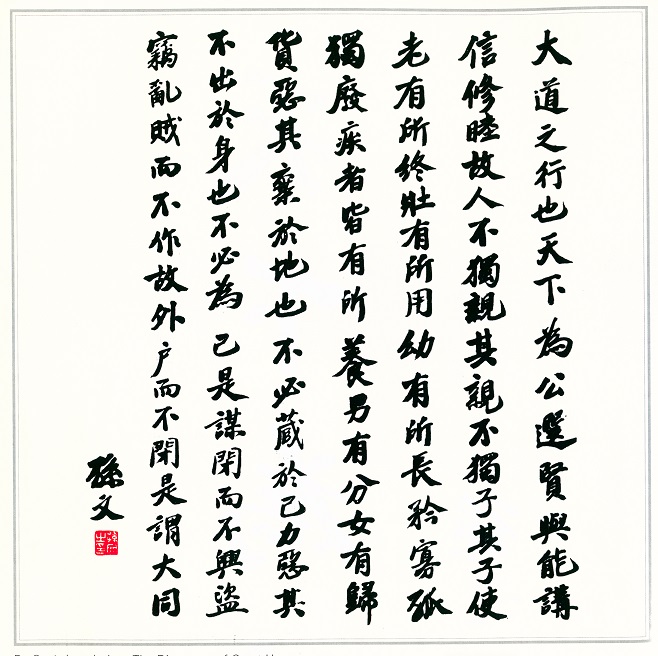 大道之行也天下為公選賢與能講
信修睦故人不獨親其親不獨子其子使
老有所終壯有所用幼有所長矜寡孤
獨廢疾者皆有所養男有分女有歸
貨惡其棄於地也不必藏於己力惡其
不出於身也不必為己是謀閉而不興盜
竊亂賊而不作故外户而不閉是謂大同
孫文